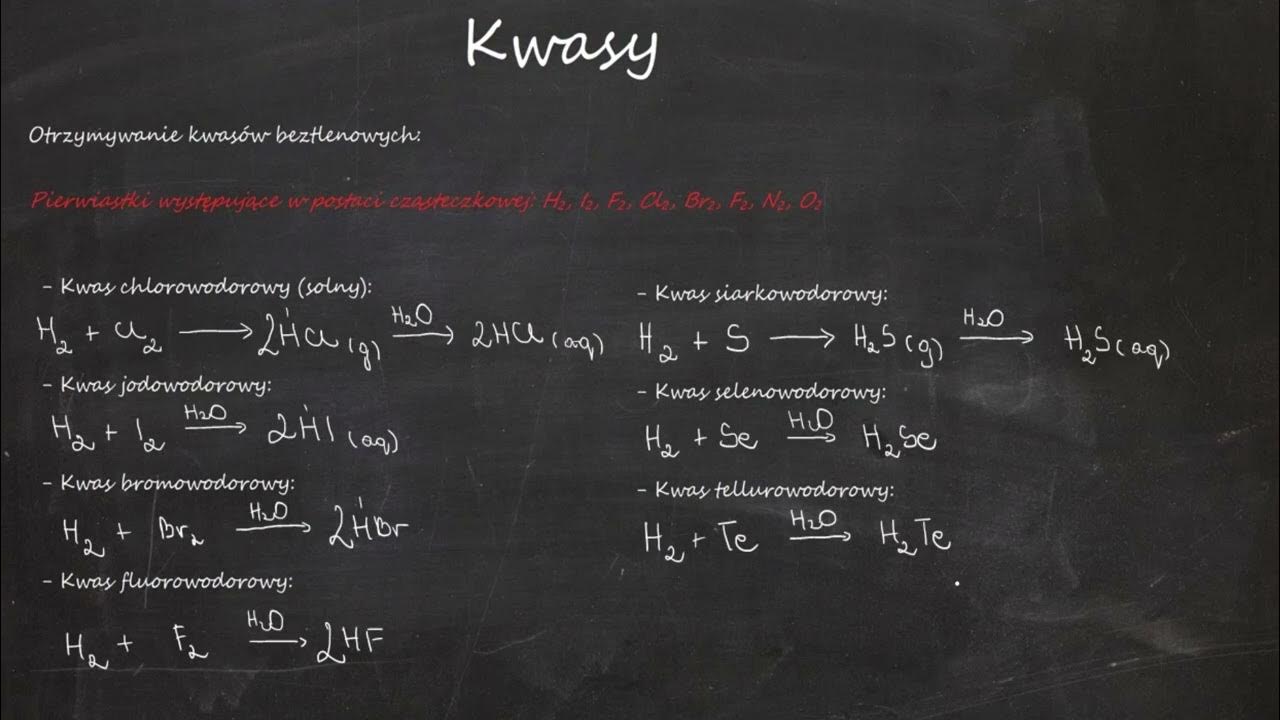 Kwasy
Otrzymywanie kwasów beztlenowych:
Pierwiastki występujące w postaci cząsteczkowej: H₂, I₂, F₂, Cl₂, Br₂, F₂, N₂, O₂
- Kwas chlorowodorowy (solny):
H₂ + Cl₂ → 2HCl(g) H₂O → 2HCl(aq)
- Kwas jodowodorowy:
H₂ + I₂ H₂O → 2HI(aq)
- Kwas bromowodorowy:
H₂ + Br₂ H₂O → 2HBr
- Kwas fluorowodorowy:
H₂ + F₂ H₂O → 2HF
- Kwas siarkowodorowy:
H₂ + S → H₂S(g) H₂O → H₂S(aq)
- Kwas selenowodorowy:
H₂ + Se H₂O → H₂Se
- Kwas tellurowodorowy:
H₂ + Te H₂O → H₂Te